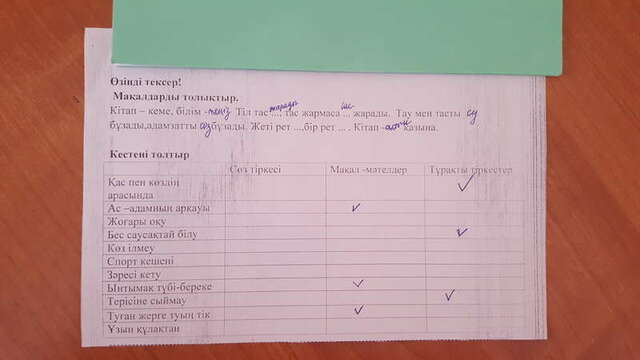 Өзіңді тексер!
Мақалдарды толықтыр.
Кітап – кеме, білім -теңіз. Тіл тас ... тас жармаса ... бас жарады. Тау мен тасты су
бұзады, адамзатты сөз бұзады. Жеті рет ....бір рет ... . Кітап - алтын қазына.
Кестені толтыр
Сөз тіркесі Мақал -мәтелдер Тұрақты тіркестер
Қас пен көздің
арасында ✓
Ас –адамның арқауы ✓
Жоғары оқу
Бес саусақтай білу ✓
Көз ілмеу
Спорт кешені
Зәресі кету
Ынтымақ түбі-береке ✓
Терісіне сыймау ✓
Туған жерге туың тік ✓
Ұзын құлақтан